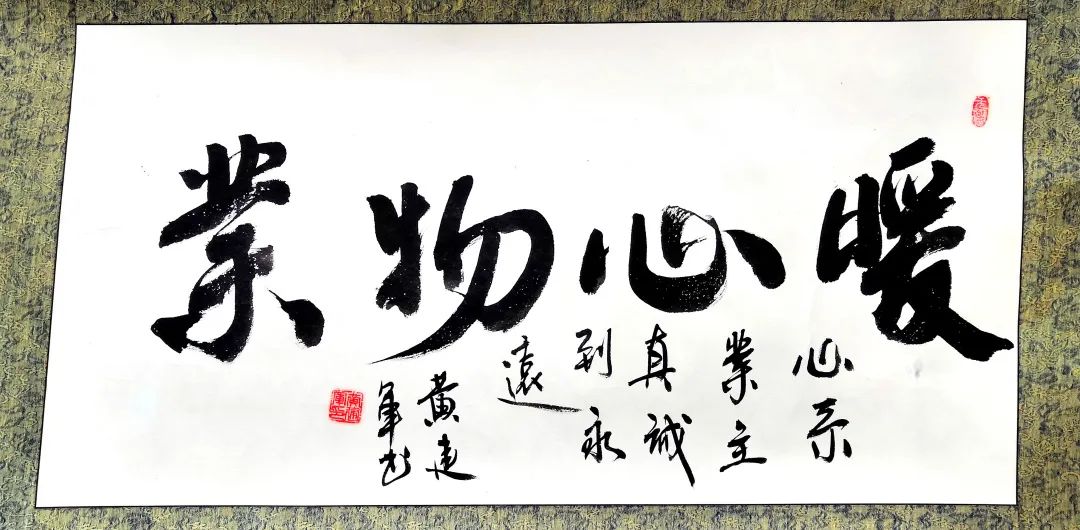 暖心物業
心系
業主
真誠
到永
遠
黄建
軍书